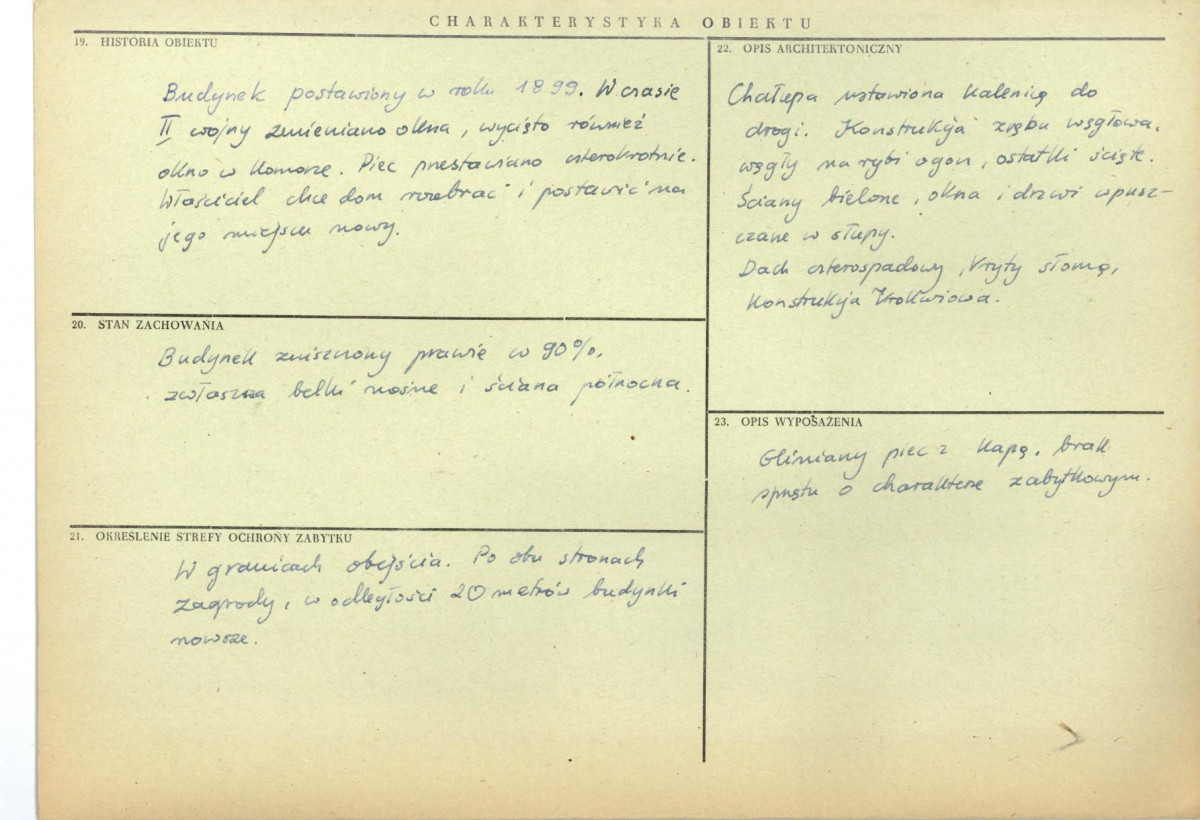 CHARAKTERYSTYKA OBIEKTU
19. HISTORIA OBIEKTU
Budynek postawiony w roku 1899. W czasie
II wojny zmieniano okna, wycięto również
okno w komorze. Piec przestawiano czterokrotnie.
Właściciel chce dom rozebrać i postawić na
jego miejscu nowy.
20. STAN ZACHOWANIA
Budynek zniszczony prawie w 90%,
zwłaszcza belki nośne i ściana północna.
21. OKREŚLENIE STREFY OCHRONY ZABYTKU
W granicach obejścia. Po obu stronach
zagrody, w odległości 20 metrów budynki
nowsze.
22. OPIS ARCHITEKTONICZNY
Chałupa ustawiona kalenicą do
drogi. Konstrukcja zrębu węgłowa,
węgły na rybi ogon, ostatki ścięte.
Ściany bielone, okna i drzwi wpusz-
czane w słupy.
Dach czterospadowy, kryty słomą,
konstrukcja krokwiowa.
23. OPIS WYPOSAŻENIA
Gliniany piec z kapą, brak
sprzętu o charakterze zabytkowym.